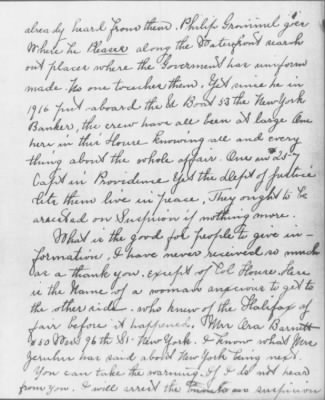 already heard from them. Philip goes
Where he Pleases along the Waterfront search
out places where the Goverment has uniform
made. No one touches them. Yet since he in
1916 put aboard the U Boat 53 the New York
Banker, the crew have all been at large One
here in this House knowing all and every
thing about the whole affair. One in 257
Capt in Providence Yet the dept of Justice
lets them live in peace, They ought to be
arrested on Suspicion if nothing more.
What is the good for people to give in-
formation, I have never received so much
as a thank you, except of Col House. Here
is the Name of a woman anxious to get to
the other side. who knew of the Halifax af
fair before it happened, Mrs Ora
50 West 96th St. New York. I know what Mrs
has said about New York being next.
You can take the warning, if I do not hear
from you. I will arrest the on suspicion